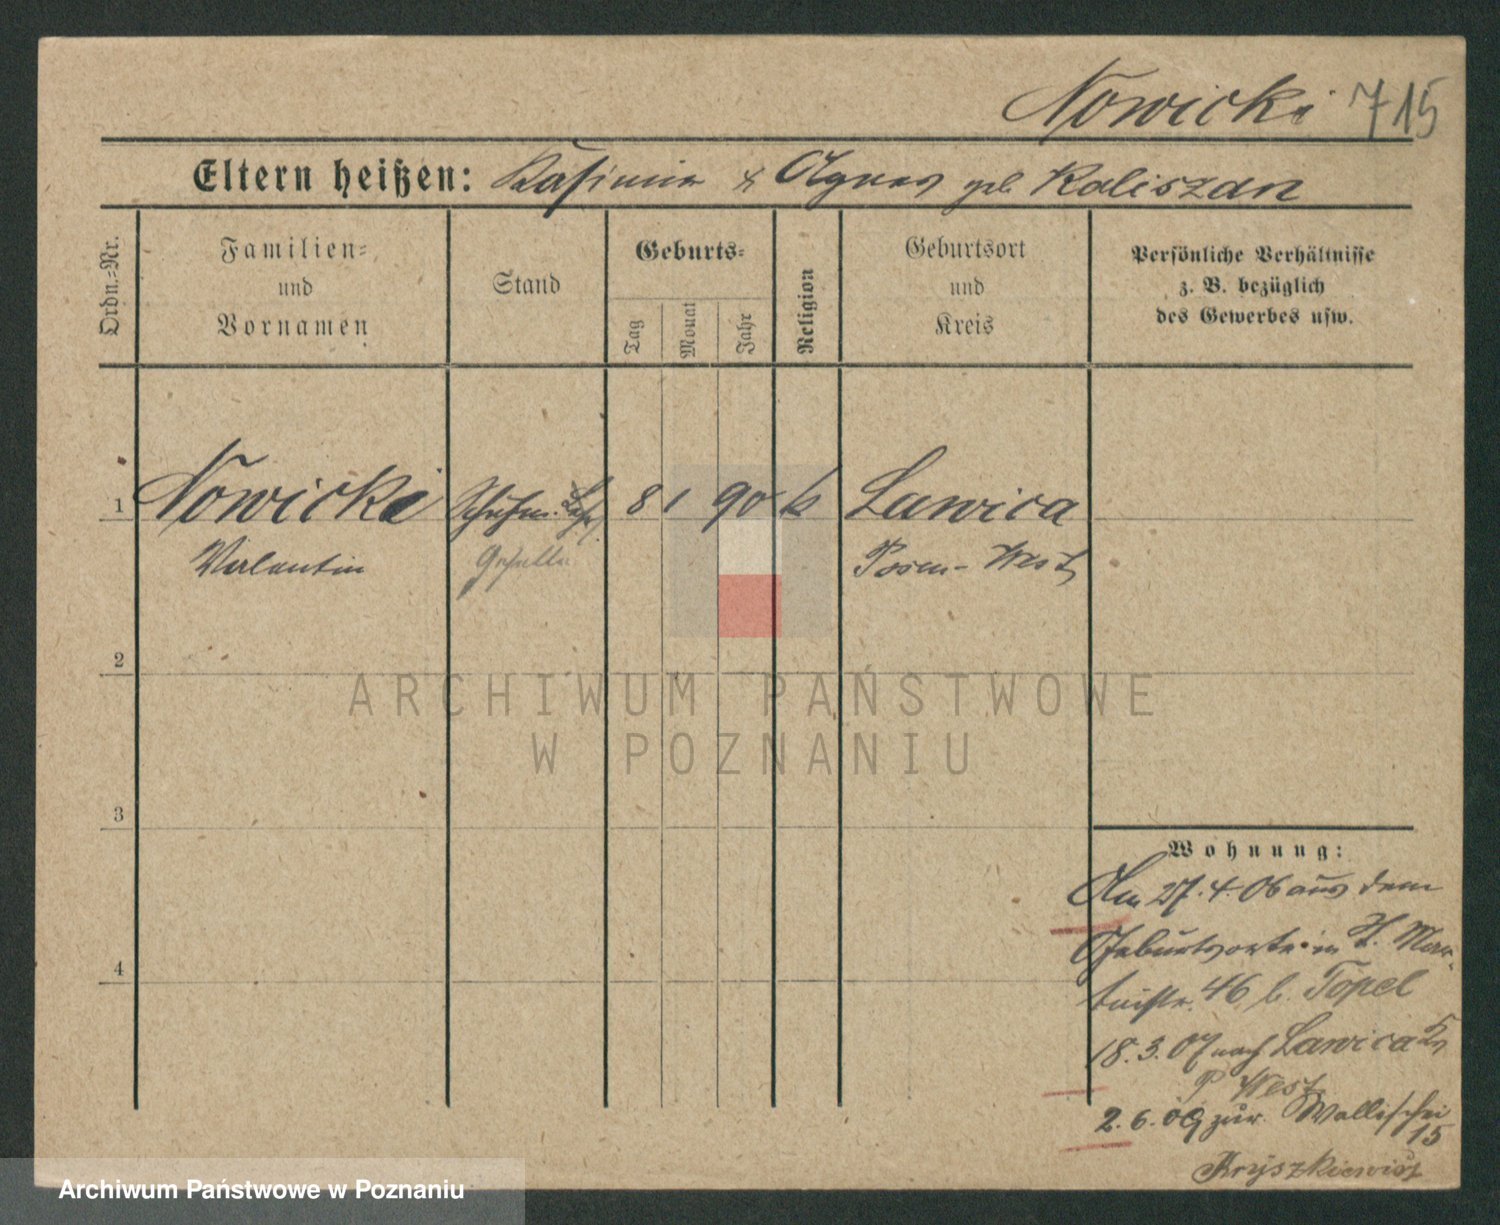 Nowicki 715
Eltern heißen: Kasimir & Agnes geb Kaliszan
Ordn.-Nr.
Familien-
und
Vornamen
Stand
Geburts-
Tag
Monat
Jahr
Religion
Geburtsort
und
Kreis
Persönliche Verhältnisse
z. B. bezüglich
des Gewerbes usw.
1 Nowicki Schuhm. 8 1 90 k Lawica
Valentin Geselle Posen-West
2
3
4
Wohnung:
Am 27.4.06 aus dem
Geburtsorte in St. Mar-
tinstr. 46 b. Topel
18.3.07 nach Lawica Kr
P West
2.6.09 zur. Wallischei
15
Kryszkiewicz
ARCHIWUM PAŃSTWOWE
W POZNANIU
Archiwum Państwowe w Poznaniu